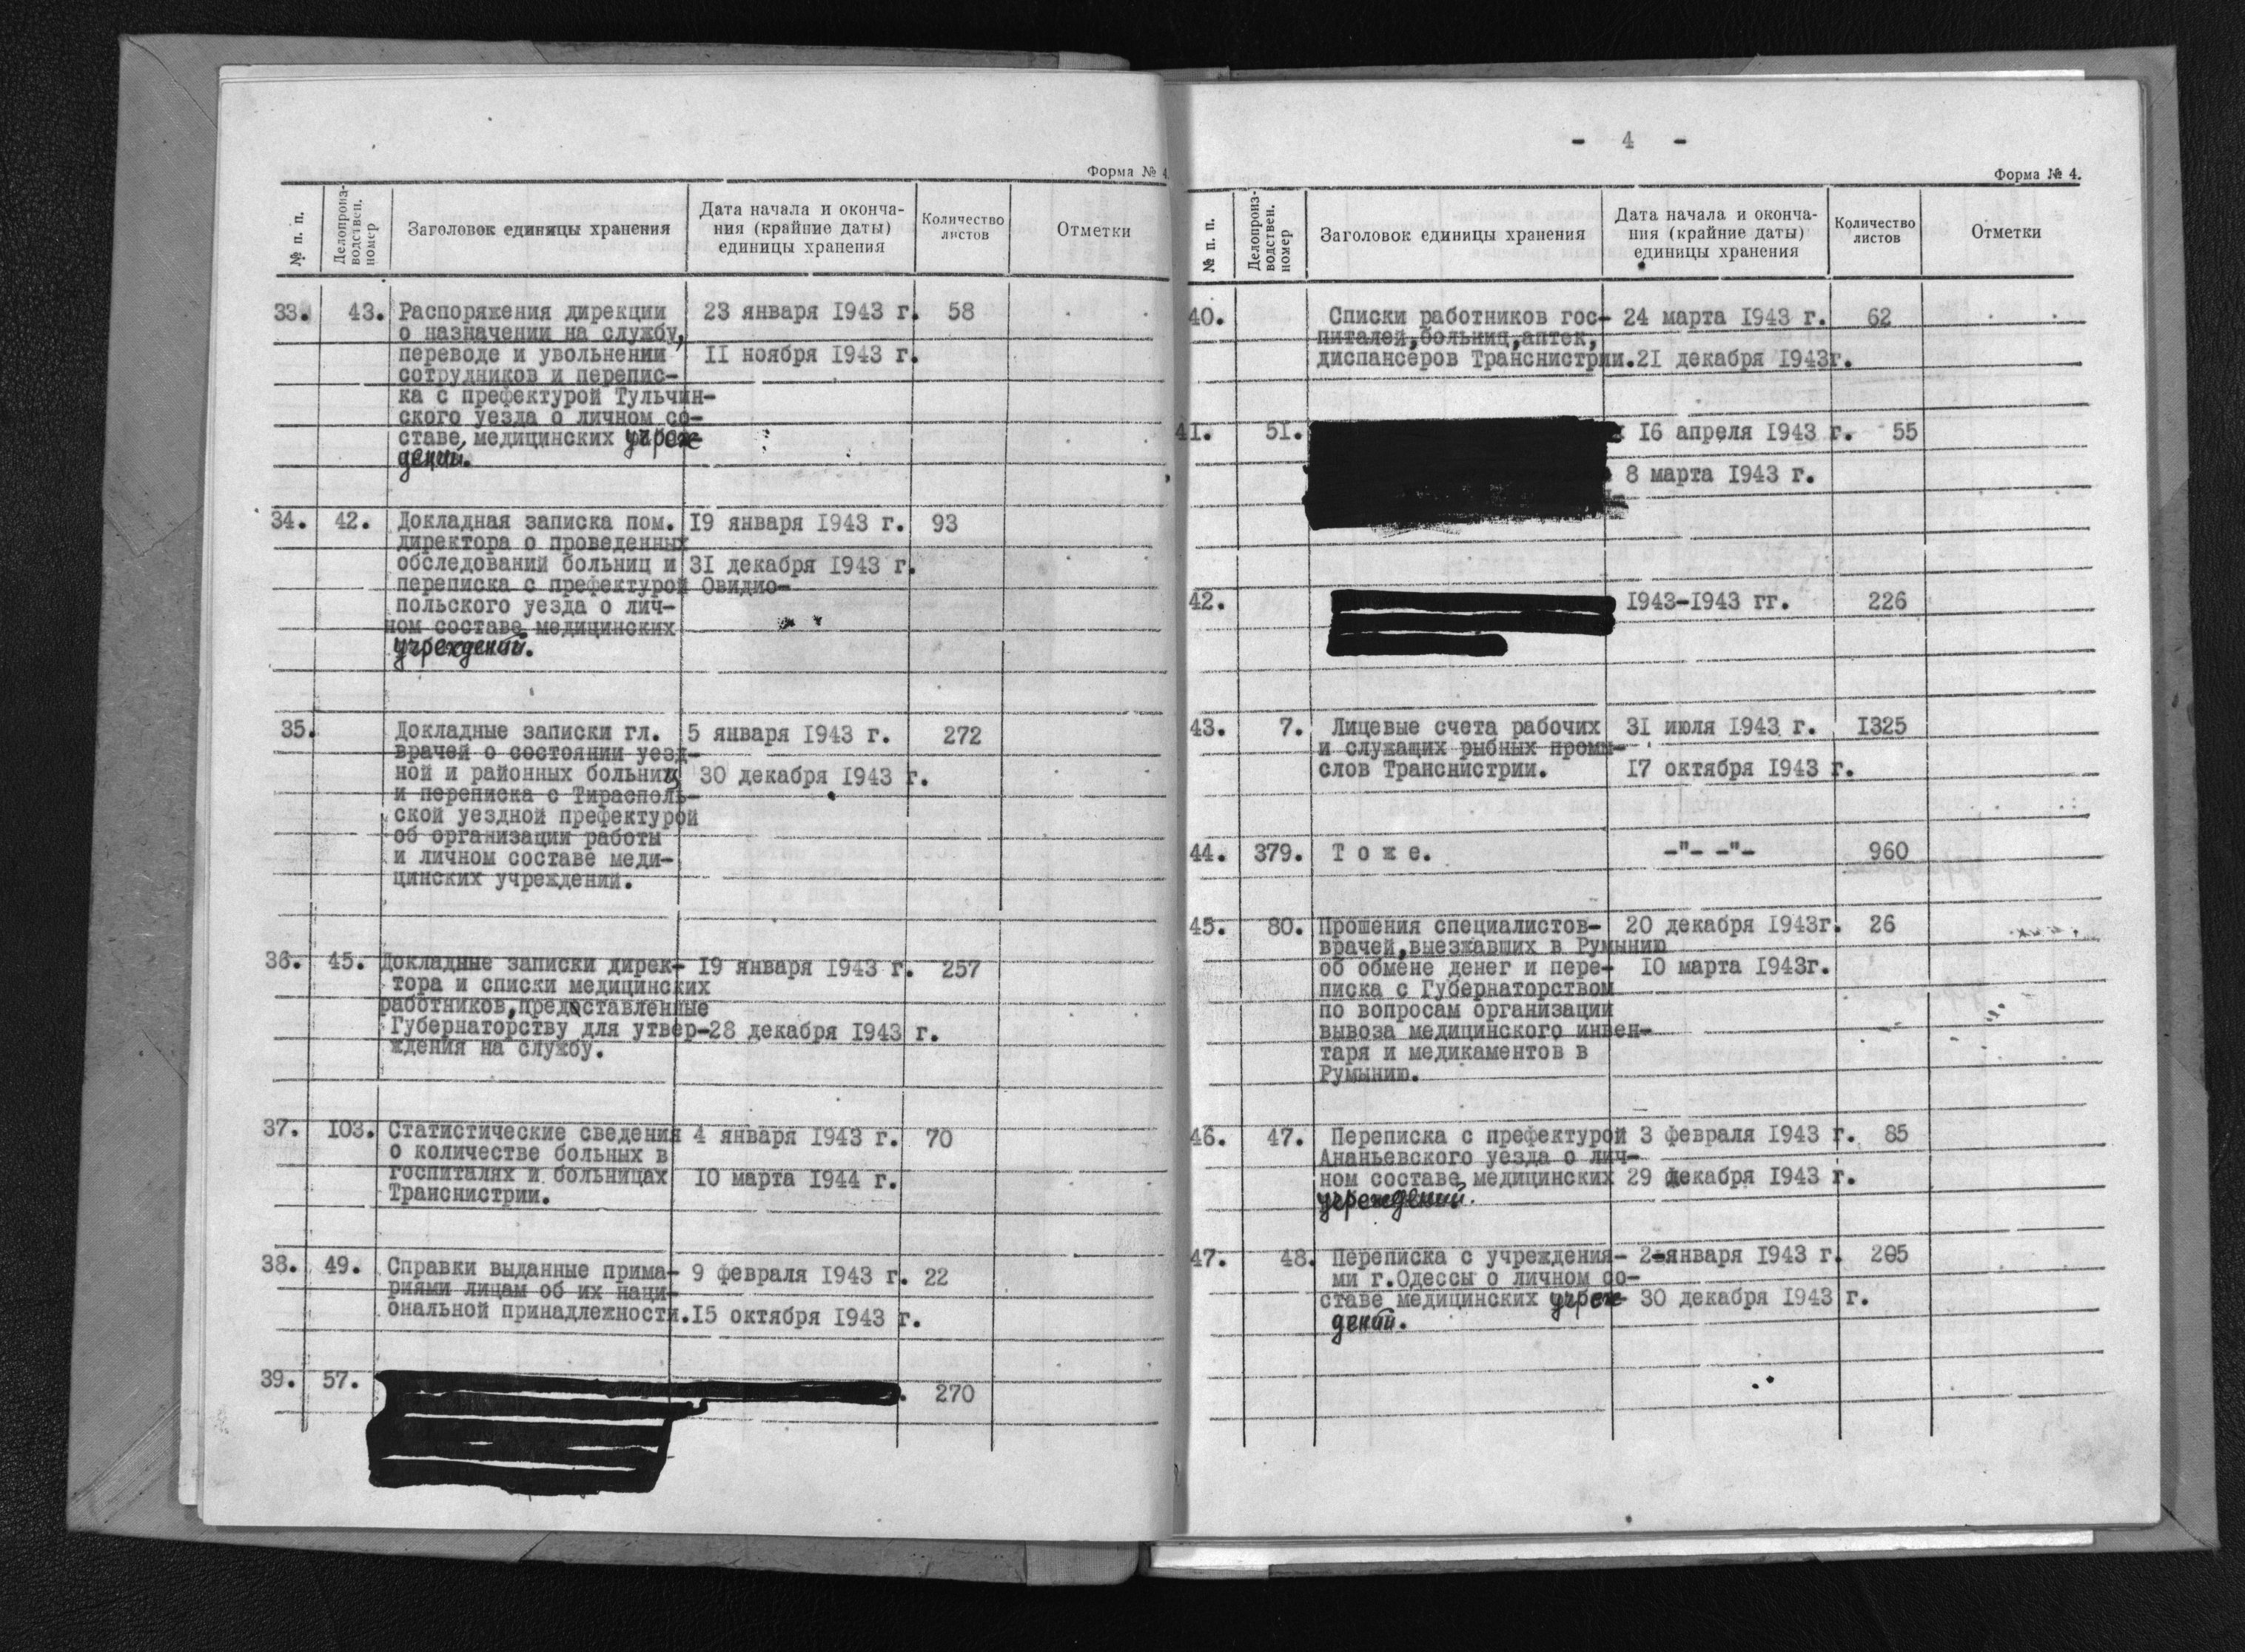 Форма № 4.
№ п. п.
Делопроиз-
водствен.
номер
Заголовок единицы хранения
Дата начала и оконча-
ния (крайние даты)
единицы хранения
Количество
листов
Отметки
33. 43. Распоряжения дирекции 23 января 1943 г. 58
о назначении на службу,
переводе и увольнении 11 ноября 1943 г.
сотрудников и перепис-
ка с префектурой Тульчин-
ского уезда о личном со-
ставе, медицинских учреж-
дений.
34. 42. Докладная записка пом. 19 января 1943 г. 93
директора о проведенных
обследований больниц и 31 декабря 1943 г.
переписка с префектурой Овидио-
польского уезда о лич-
ном составе медицинских
учреждений.
35. Докладные записки гл. 5 января 1943 г. 272
врачей о состоянии уезд-
ной и районных больниц 30 декабря 1943 г.
и переписка с Тирасполь-
ской уездной префектурой
об организации работы
и личном составе меди-
цинских учреждений.
36. 45. Докладные записки дирек- 19 января 1943 г. 257
тора и списки медицинских
работников, предоставленные
Губернаторству для утвер- 28 декабря 1943 г.
ждения на службу.
37. 103. Статистические сведения 4 января 1943 г. 70
о количестве больных в
госпиталях и больницах 10 марта 1944 г.
Транснистрии.
38. 49. Справки выданные прима- 9 февраля 1943 г. 22
риями лицам об их наци-
ональной принадлежности. 15 октября 1943 г.
39. 57. 270
- 4 -
Форма № 4.
№ п. п.
Делопроиз-
водствен.
номер
Заголовок единицы хранения
Дата начала и оконча-
ния (крайние даты)
единицы хранения
Количество
листов
Отметки
40. Списки работников гос- 24 марта 1943 г. 62
питалей, больниц, аптек,
диспансеров Транснистрии. 21 декабря 1943г.
41. 51. 16 апреля 1943 г. 55
8 марта 1943 г.
42. 1943-1943 гг. 226
43. 7. Лицевые счета рабочих 31 июля 1943 г. 1325
и служащих рыбных промы-
слов Транснистрии. 17 октября 1943 г.
44. 379. Т о ж е. -"- -"- 960
45. 80. Прошения специалистов- 20 декабря 1943г. 26
врачей, выезжавших в Румынию
об обмене денег и пере- 10 марта 1943г.
писка с Губернаторством
по вопросам организации
вывоза медицинского инвен-
таря и медикаментов в
Румынию.
46. 47. Переписка с префектурой 3 февраля 1943 г. 85
Ананьевского уезда о лич-
ном составе медицинских 29 декабря 1943 г.
учреждений.
47. 48. Переписка с учреждения- 2-января 1943 г. 205
ми г.Одессы о личном со-
ставе медицинских учреж- 30 декабря 1943 г.
дений.